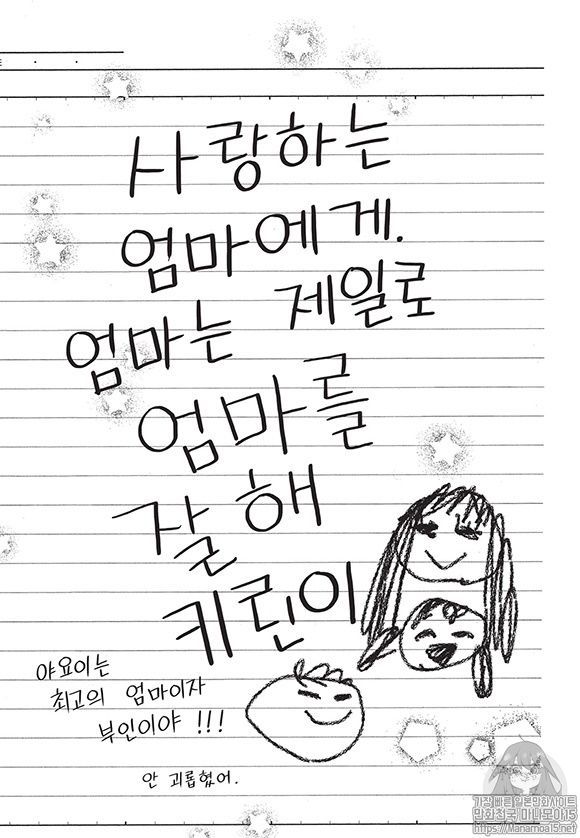 사랑하는
엄마에게.
엄마는 제일로
엄마를
잘해
키린이
야요이는
최고의 엄마이자
부인이야 !!!
안 괴롭혔어.
가장빠른일본만화사이트
만화천국 마나모아15
https://Manamoa15.net/